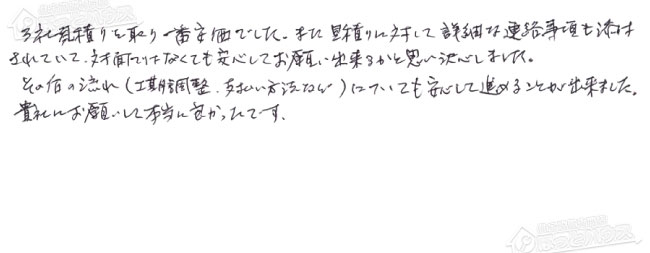 3社見積りを取り一番安価でした。また見積りに対して詳細な連絡事項も添付
されていて、対面ではなくても安心してお願い出来るかと思い決心しました。
その后の流れ(工期調整、支払い方法など)についても安心して進めることが出来ました。
貴社にお願いして本当に良かったです。